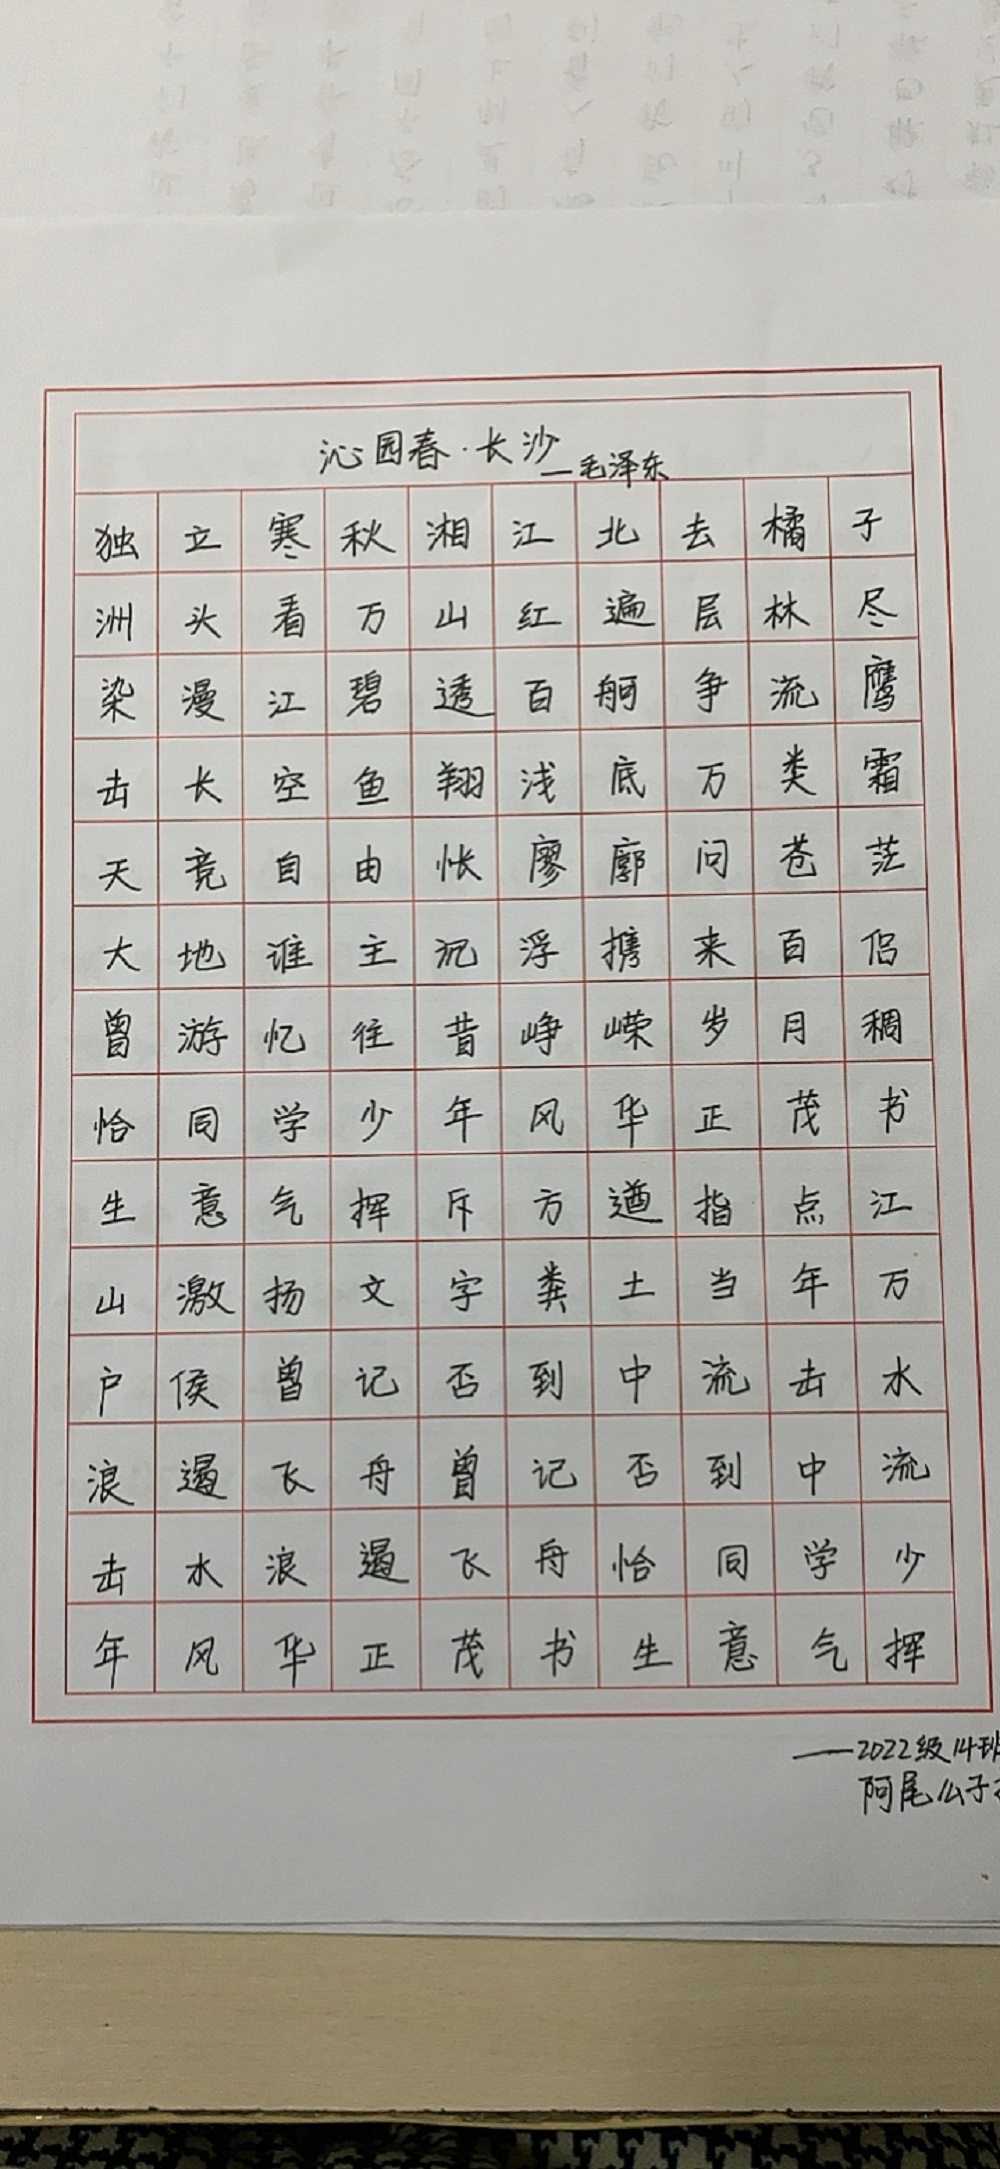 沁园春·长沙
—毛泽东
独立寒秋湘江北去橘子
洲头看万山红遍层林尽
染漫江碧透百舸争流鹰
击长空鱼翔浅底万类霜
天竞自由怅廖廓问苍茫
大地谁主沉浮携来百侣
曾游忆往昔峥嵘岁月稠
恰同学少年风华正茂书
生意气挥斥方遒指点江
山激扬文字粪土当年万
户侯曾记否到中流击水
浪遏飞舟曾记否到中流
击水浪遏飞舟恰同学少
年风华正茂书生意气挥
——2022级14班
阿尾公子